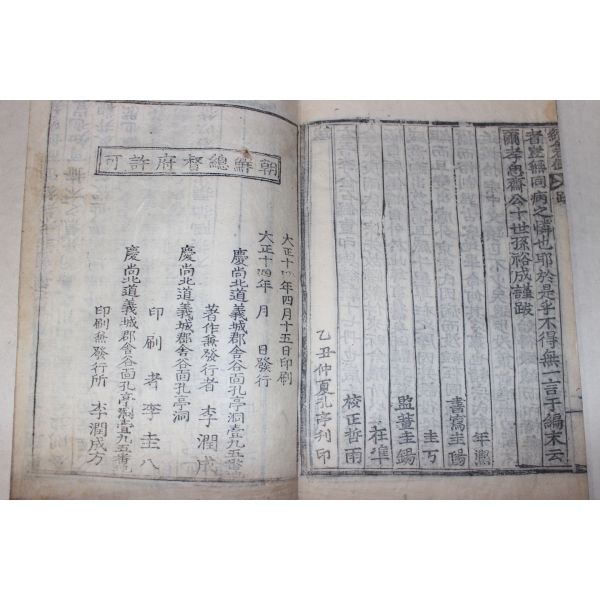 者豈無同病之憐也耶於是乎不得無一言于編末云
爾孝思齋公十世孫裕成謹跋
年凞
書寫圭錫
圭丂
監董圭錫
在準
校正哲雨
乙丑仲夏孔亭刊印
朝鮮總督府許可
大正十四年四月十五日印刷
大正十四年 月 日發行
慶尚北道義城郡舍谷面孔亭洞壹九五番
著作兼發行者 李潤成
慶尚北道義城郡舍谷面孔亭洞
印刷者 李圭八
慶尚北道義城郡舍谷面孔亭洞壹九五番
印刷兼發行所 李潤成方